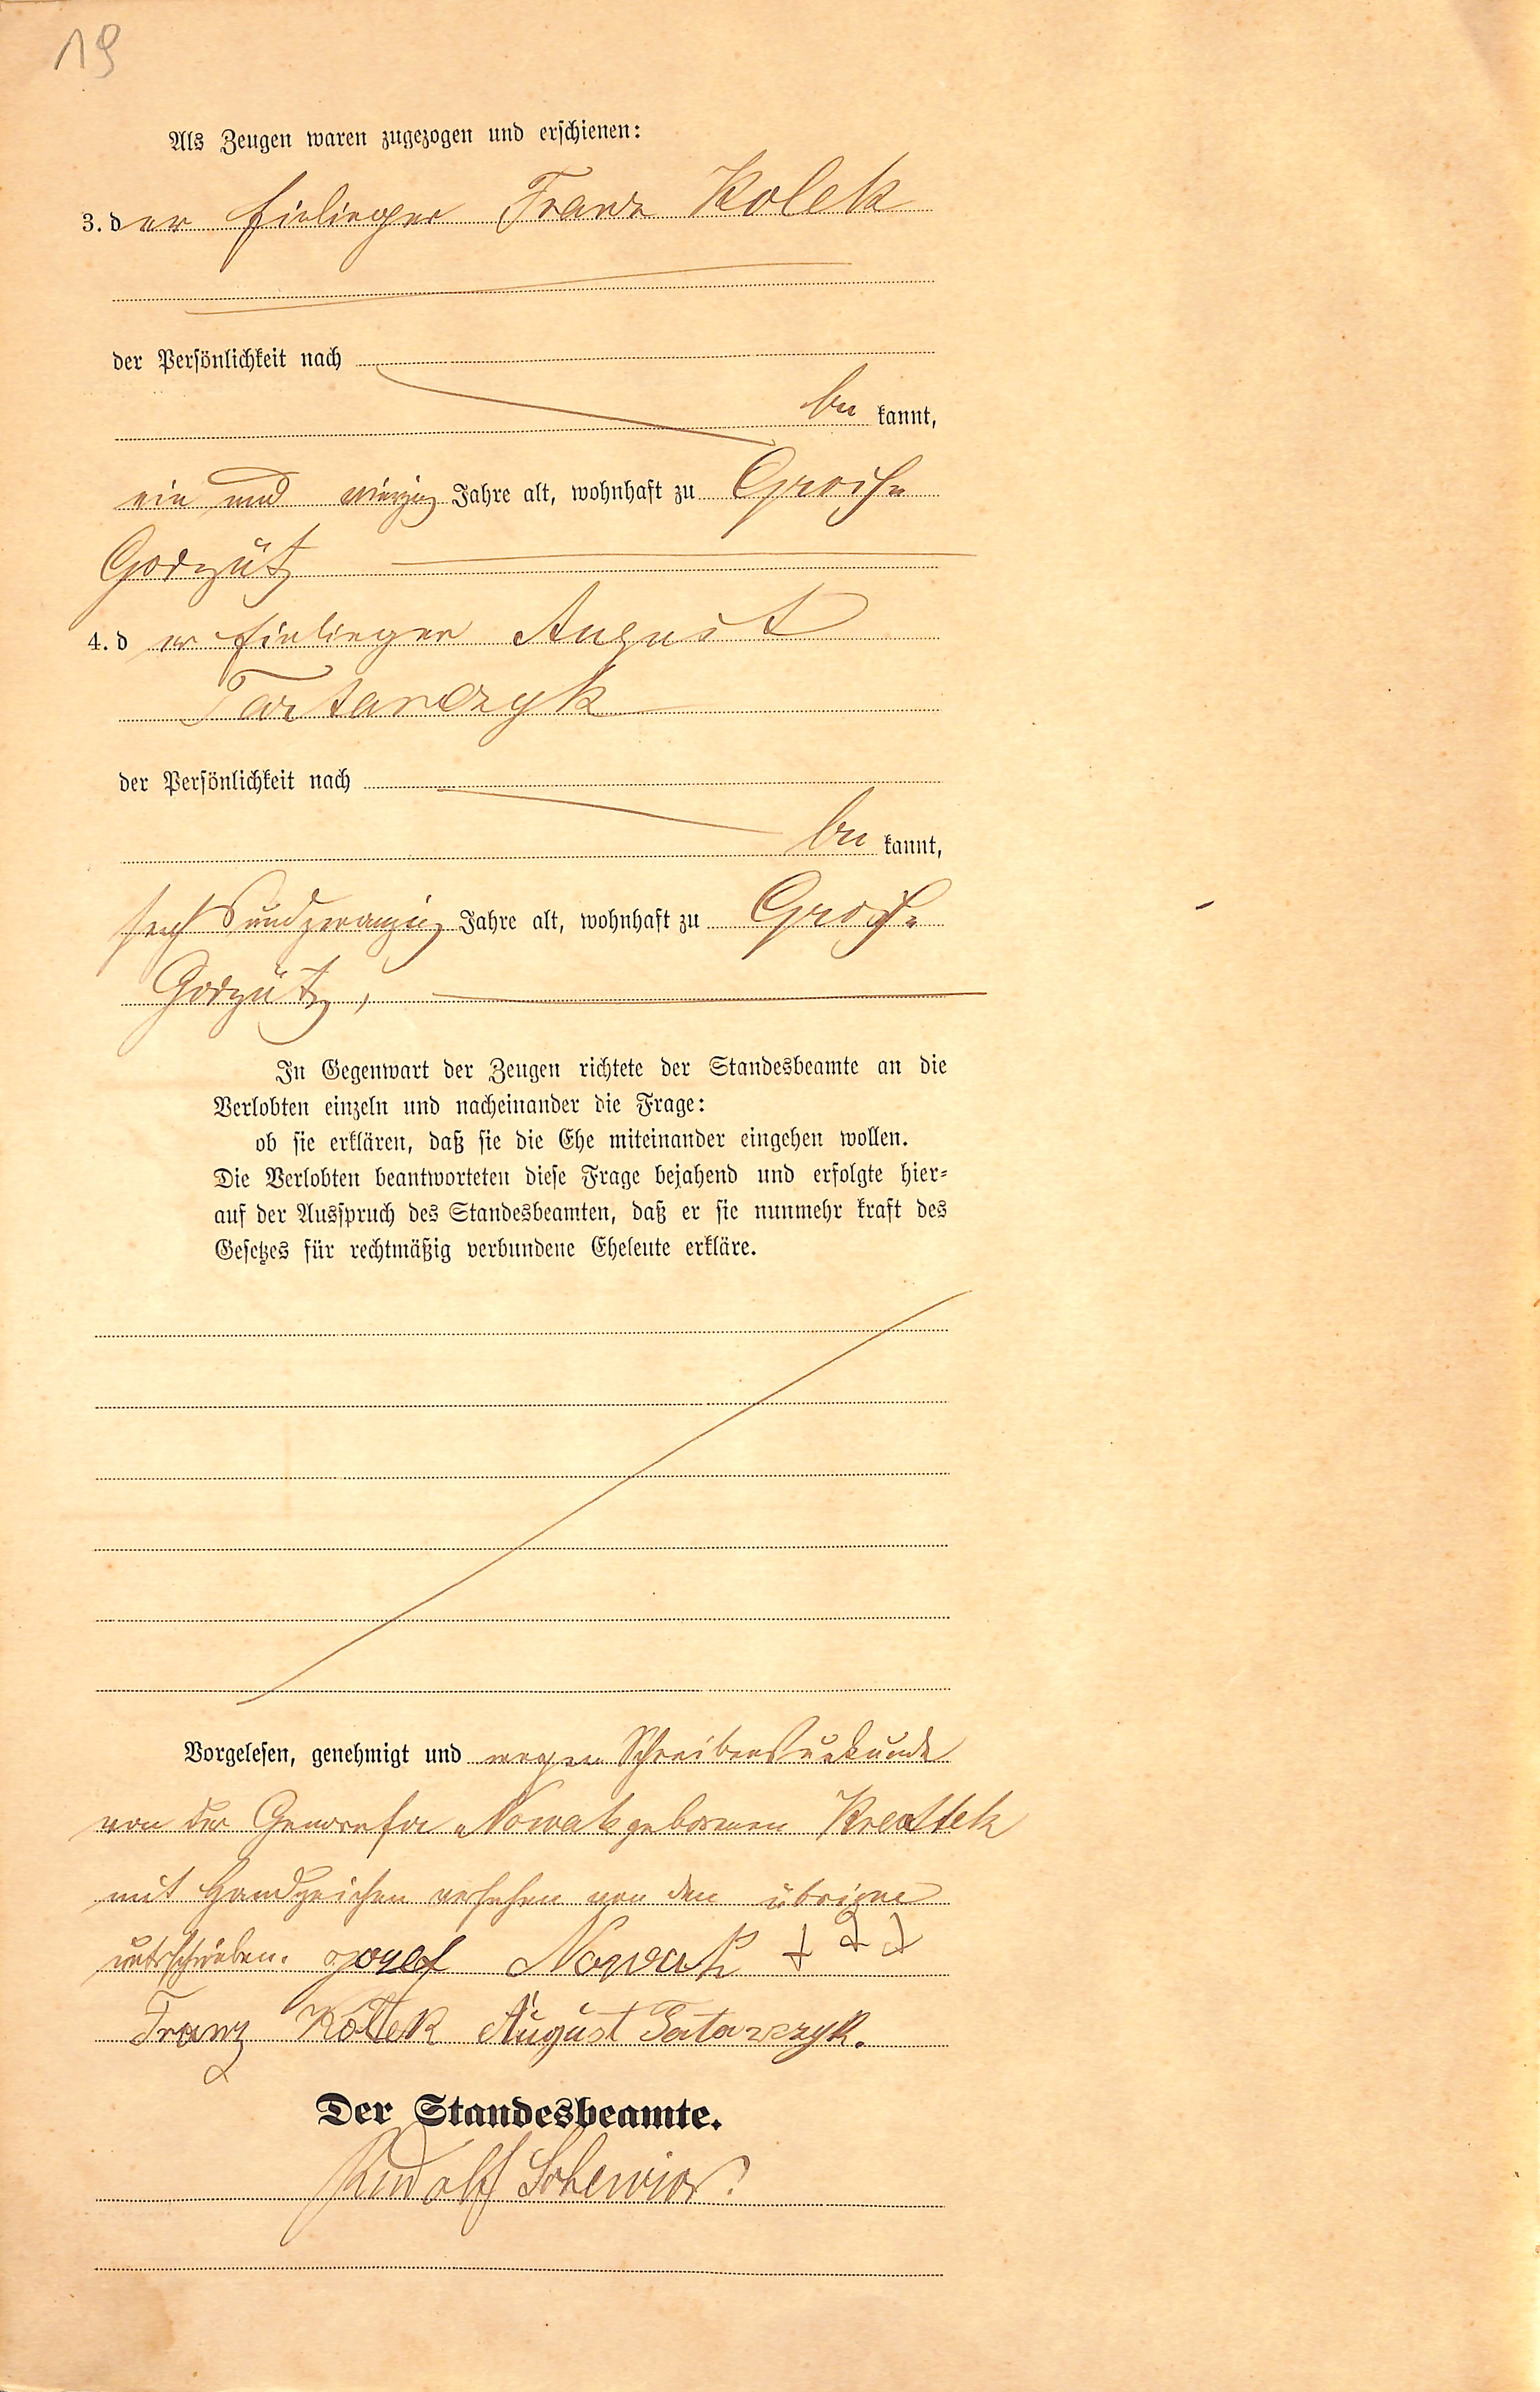 19
Als Zeugen waren zugezogen und erschienen:
3. der Einlieger Franz Kolek
der Persönlichkeit nach
be kannt,
ein und vierzig Jahre alt, wohnhaft zu Groß-
Gorzütz
4. d er Einlieger August
Tartarczyk
der Persönlichkeit nach
be kannt,
sechsundzwanzig Jahre alt, wohnhaft zu Groß-
Gorzütz,
In Gegenwart der Zeugen richtete der Standesbeamte an die
Verlobten einzeln und nacheinander die Frage:
ob sie erklären, daß sie die Ehe miteinander eingehen wollen.
Die Verlobten beantworteten diese Frage bejahend und erfolgte hier-
auf der Ausspruch des Standesbeamten, daß er sie nunmehr kraft des
Gesetzes für rechtmäßig verbundene Eheleute erkläre.
Vorgelesen, genehmigt und wegen Schreibensunkunde
von der Genovefa Nowak geborenen
mit Handzeichen versehen von den übrigen
unterschrieben. Jozef Nowak + + +
Franz Kollek August Tatarczyk.
Der Standesbeamte.
Rudolf